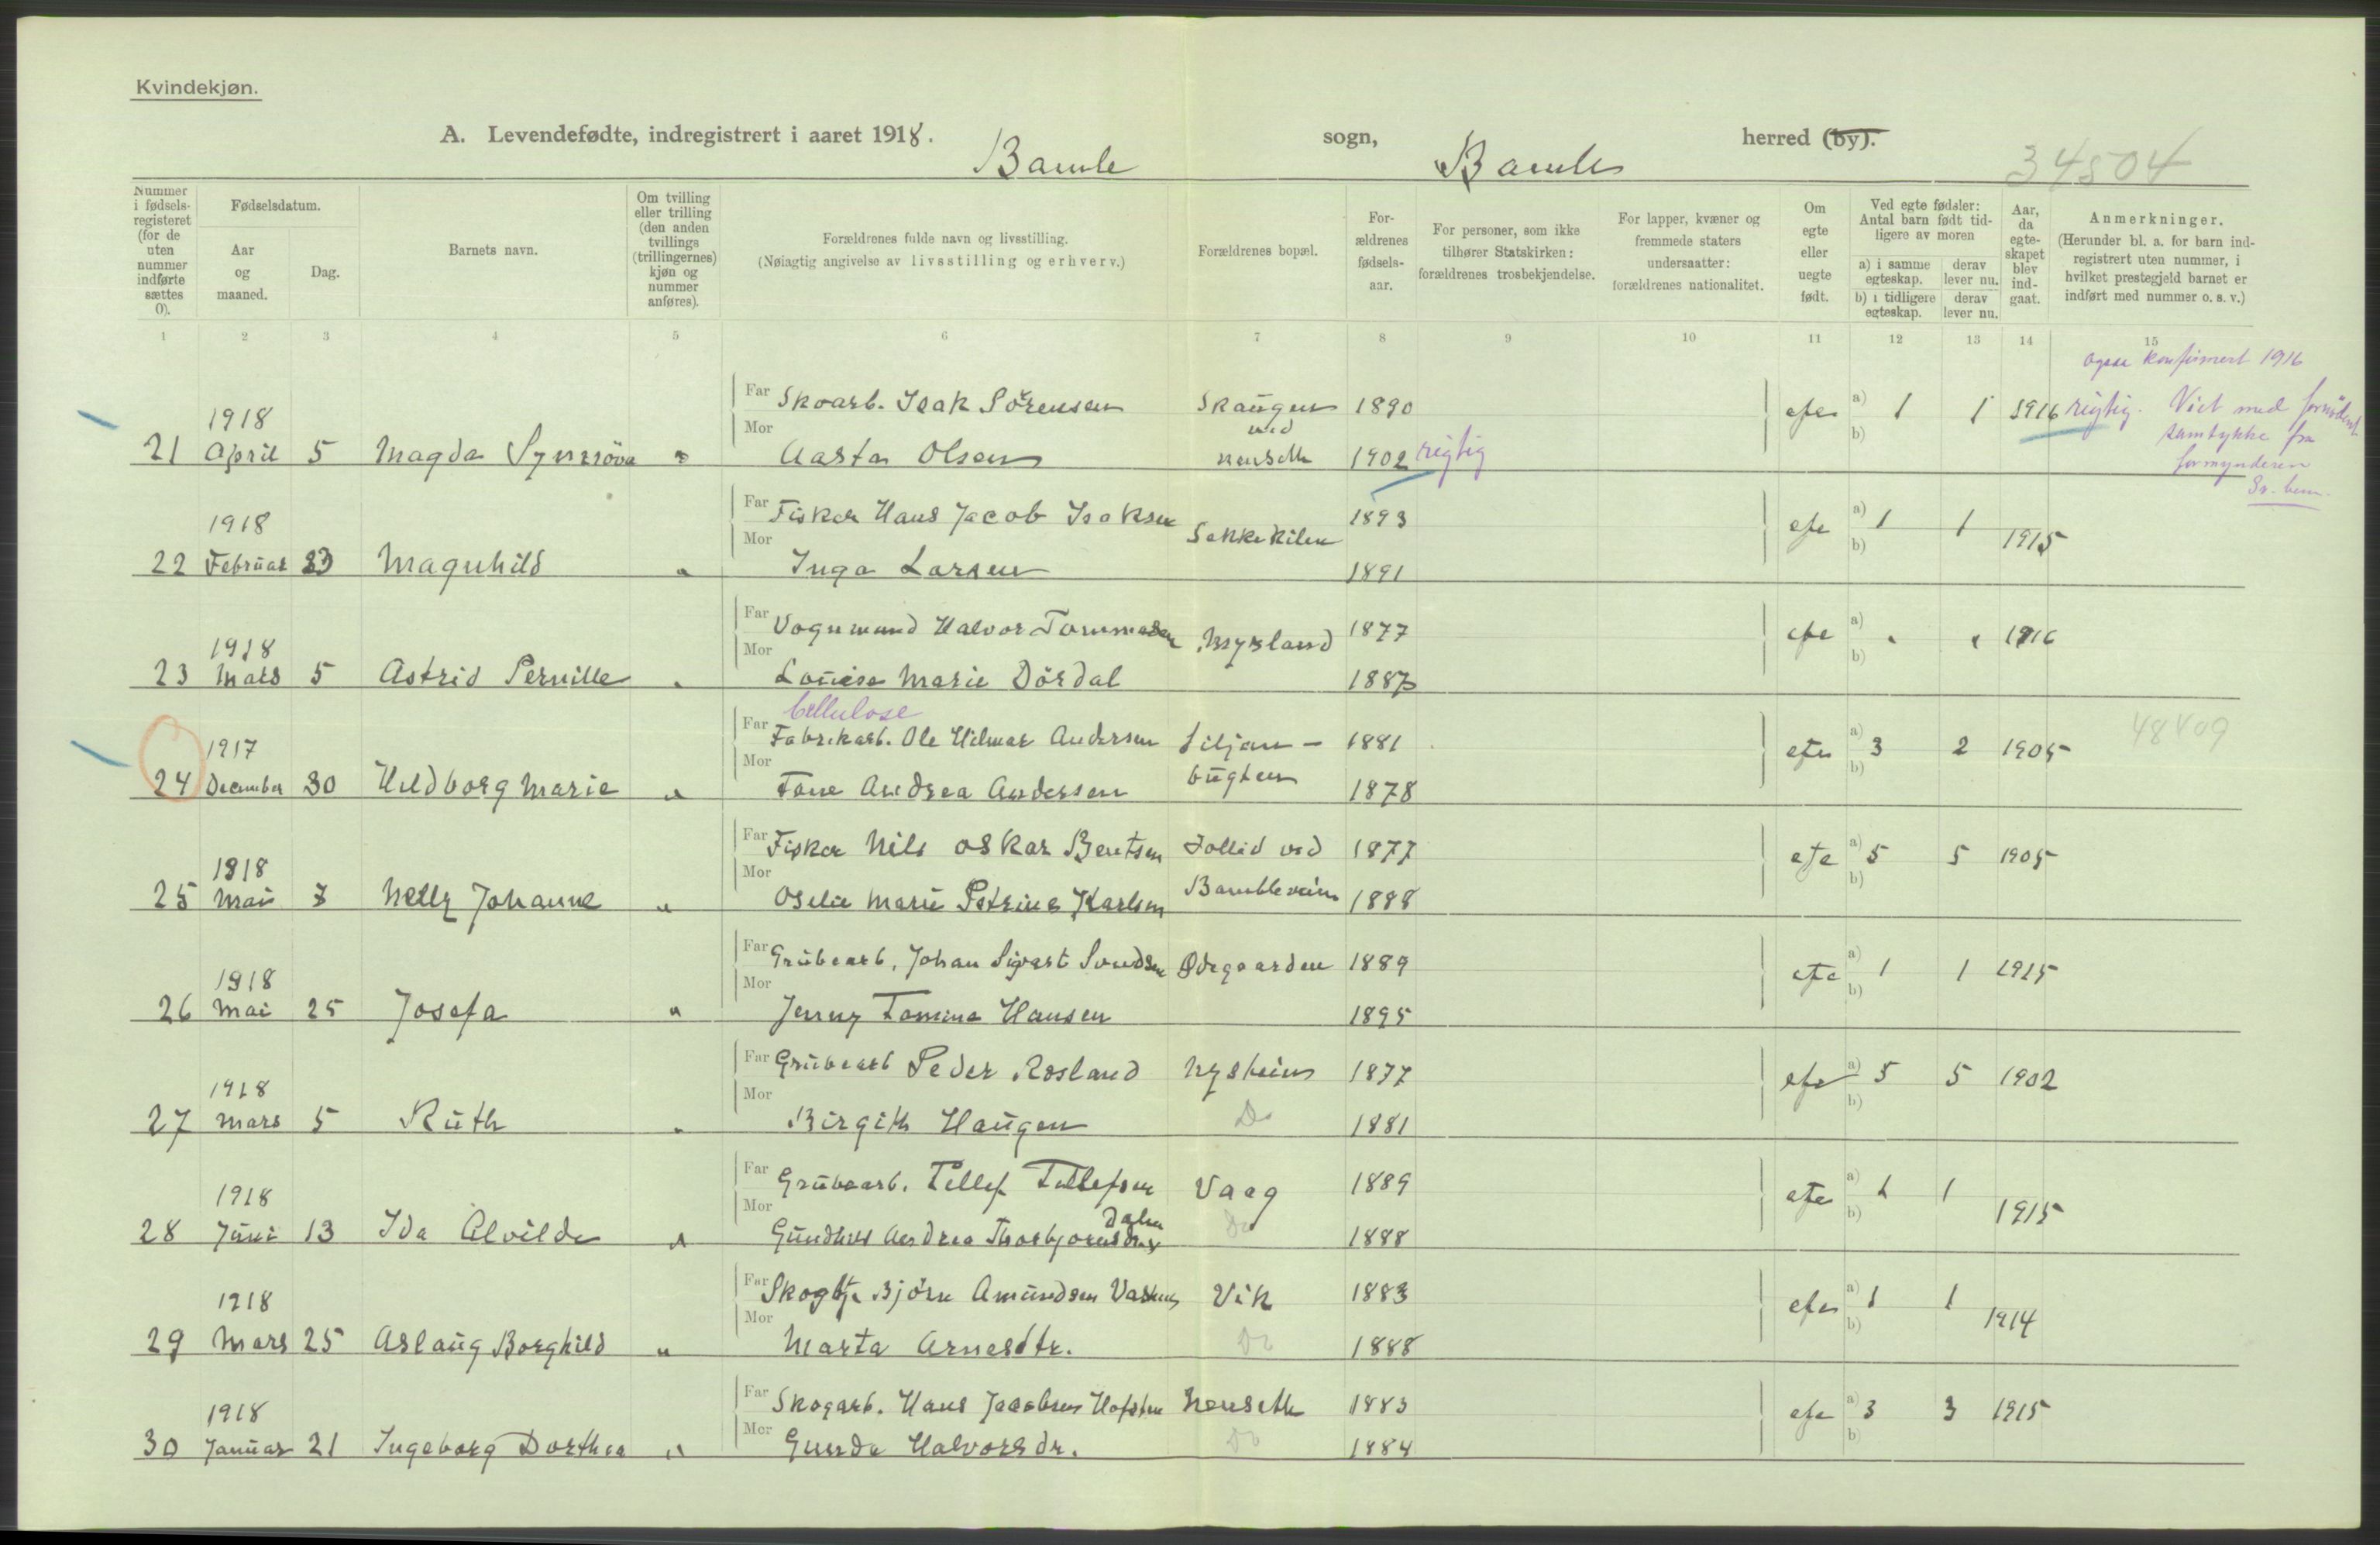 Kvindekjøn.
A. Levendefødte, indregistrert i aaret 1918. Bamle sogn, Bamle herred (by).
34504
Nummer i fødselsregisteret (for de uten nummer indførte sættes 0).
Fødselsdatum.
Aar og maaned.
Dag.
Barnets navn.
Om tvilling eller trilling (den anden tvillings (trillingernes) kjøn og nummer anføres).
Forældrenes fulde navn og livsstilling.
(Nøiagtig angivelse av livsstilling og erhverv.)
Forældrenes bopæl.
Forældrenes fødselsaar.
For personer, som ikke tilhører Statskirken: forældrenes trosbekjendelse.
For lapper, kvæner og fremmede staters undersaatter: forældrenes nationalitet.
Om egte eller uegte født.
Ved egte fødsler: Antal barn født tidligere av moren
a) i samme egteskap. derav lever nu.
b) i tidligere egteskap. derav lever nu.
Aar, da egteskapet blev indgaat.
Anmerkninger.
(Herunder bl. a. for barn indregistrert uten nummer, i hvilket prestegjeld barnet er indført med nummer o. s. v.)
1 2 3 4 5 6 7 8 9 10 11 12 13 14 15
ogsaa konfirmert 1916
1918 Far Skoarb. Isak Sörensen Skaugen 1890 a) 1 1 1916 rigtig. Viet med
ved b) samtykke fra
21 April 5 Magda Synnöva " Mor Aasta Olsen 1902 rigtig formynderen
1918 Far Fisker Hans Jacob Isaksen 1893 a) 1 1 1915
22 Februar 23 Magnhild " Mor Inga Larsen 1891 b)
1918 Far Vognmand Halvor Tommesen 1877 a) " " 1916
23 Mars 5 Astrid Pernille " Mor Louise Marie Dördal b)
Cellulose
1917 Far Fabrikarb. Ole Hilmar Andersen 1881 a) 3 2 1905 48409
24 December 30 Hildborg Marie " Mor Andrea Andersen bugten 1878 b)
1918 Far Fisker Nils Oskar Bentsen ved 1877 a) 5 5 1905
25 Mai Nelly Johanne " Mor Marie Petrine Karlsen 1888 b)
1918 Far Grubearb. Johan Sigvart Ødegaarden 1889 a) 1 1 1915
26 Mai 25 Josefa " Mor Jenny Tomine Hansen 1895 b)
1918 Far Grubearb Peder Rosland Nysheim 1877 a) 5 5 1902
27 Mars 5 Ruth " Mor Birgith Haugen Do 1881 b)
1918 Far Grubearb. Tellef Tellefsen Vaag 1889 a) 1 1 1915
28 Juni 13 Ida Alvilde " Mor Gundhild Andrea Thorbjørnsdatter Do 1888 b)
1918 Far Björn Amundsen Vik 1883 a) 1 1 1914
29 Mars 25 Aslaug Borghild " Mor Marta Arnesdtr. Do 1888 b)
1918 Far Skogarb. Hans Jacobsen 1883 a) 3 3 1915
30 Januar 21 Ingeborg Dorthea " Mor Gunda Halvorsdr. Do 1884 b)